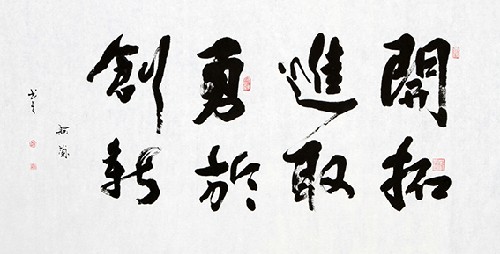 開拓
進取
勇於
創新